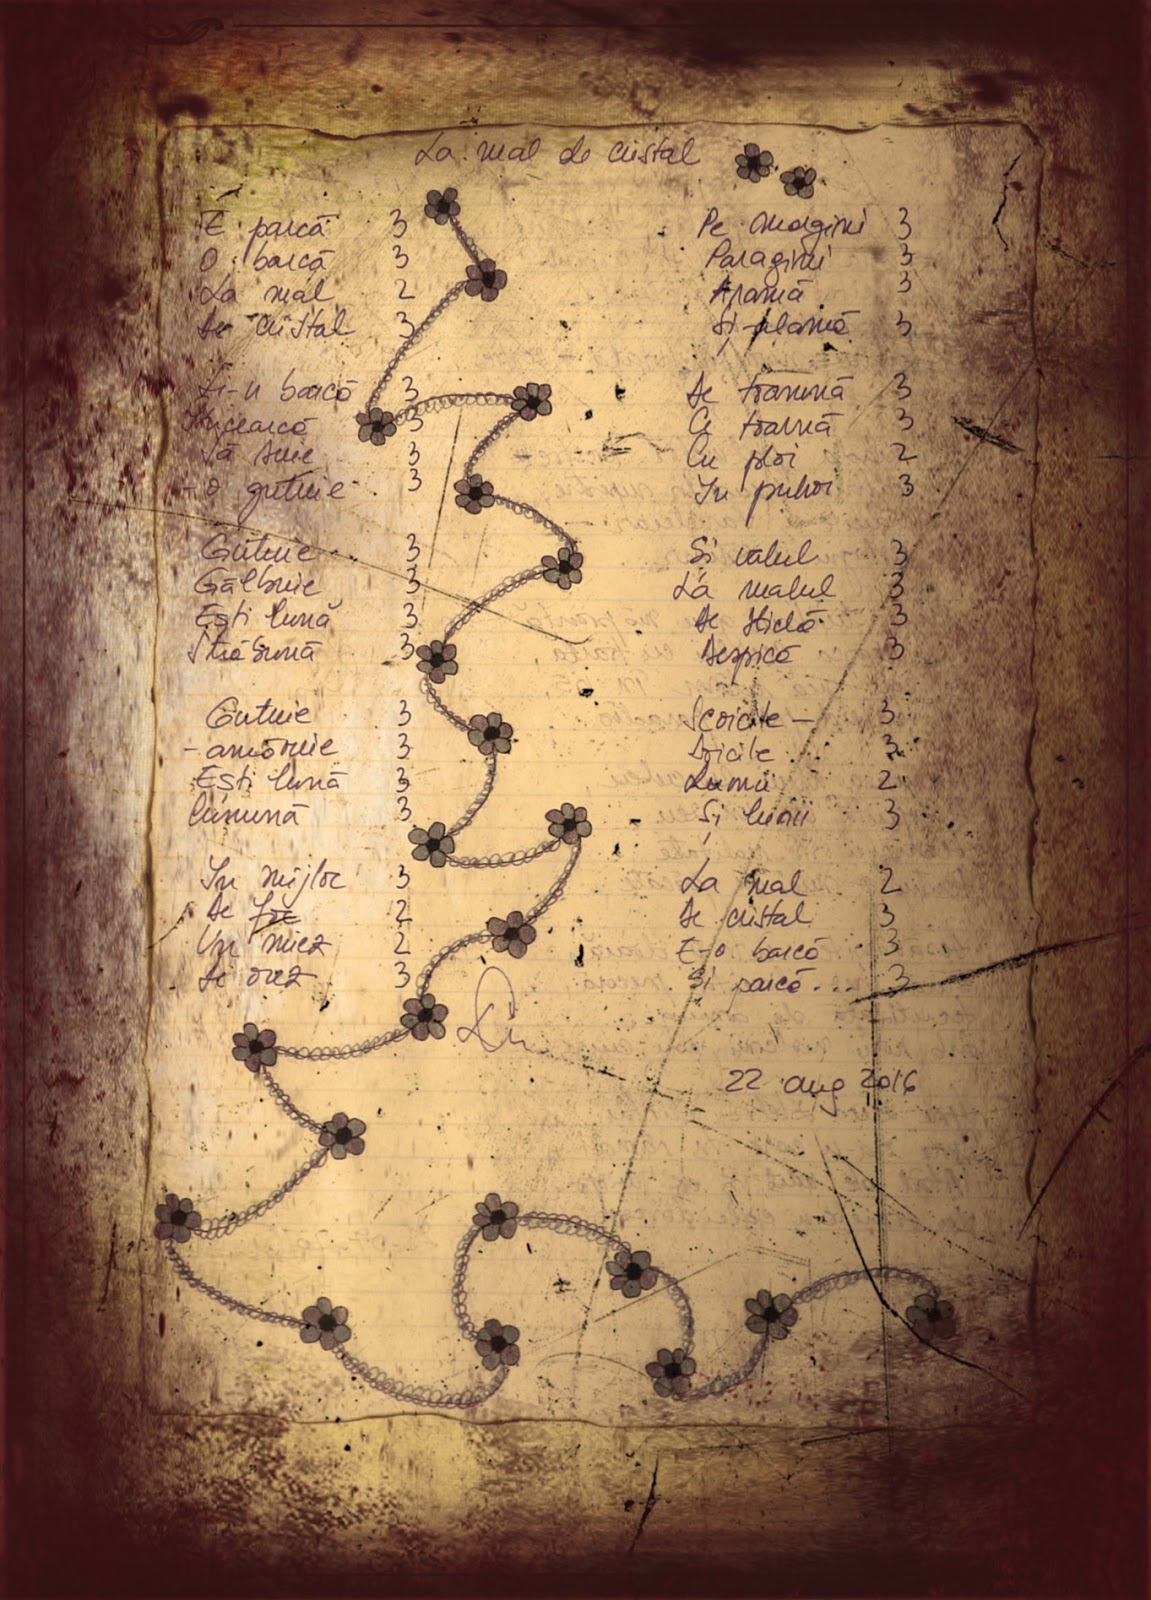 La mal de cristal
E parcă 3
O barcă 3
La mal 2
De cristal 3
Și-n barcă 3
Încearcă 3
Să ște 3
- o gutuie 3
Gutuie 3
Gălbuie 3
Ești lună 3
Străbună 3
Gutuie 3
- amăruie 3
Ești lună 3
lúnună 3
In mijloc 3
De foc 2
Un miez 2
De orez 3
Pe margini 3
Paragini 3
Aramă 3
Și-plamă 3
De toamnă 3
Ce toarnă 3
Cu ploi 2
In puhoi 3
Și valul 3
La malul 3
De sticlă 3
Despică 3
Scoicile - 3
Stricile 3
Lumii 2
Și lunii 3
La mal 2
De cristal 3
E-o barcă 3
Și parcă... 3
22 aug 2016